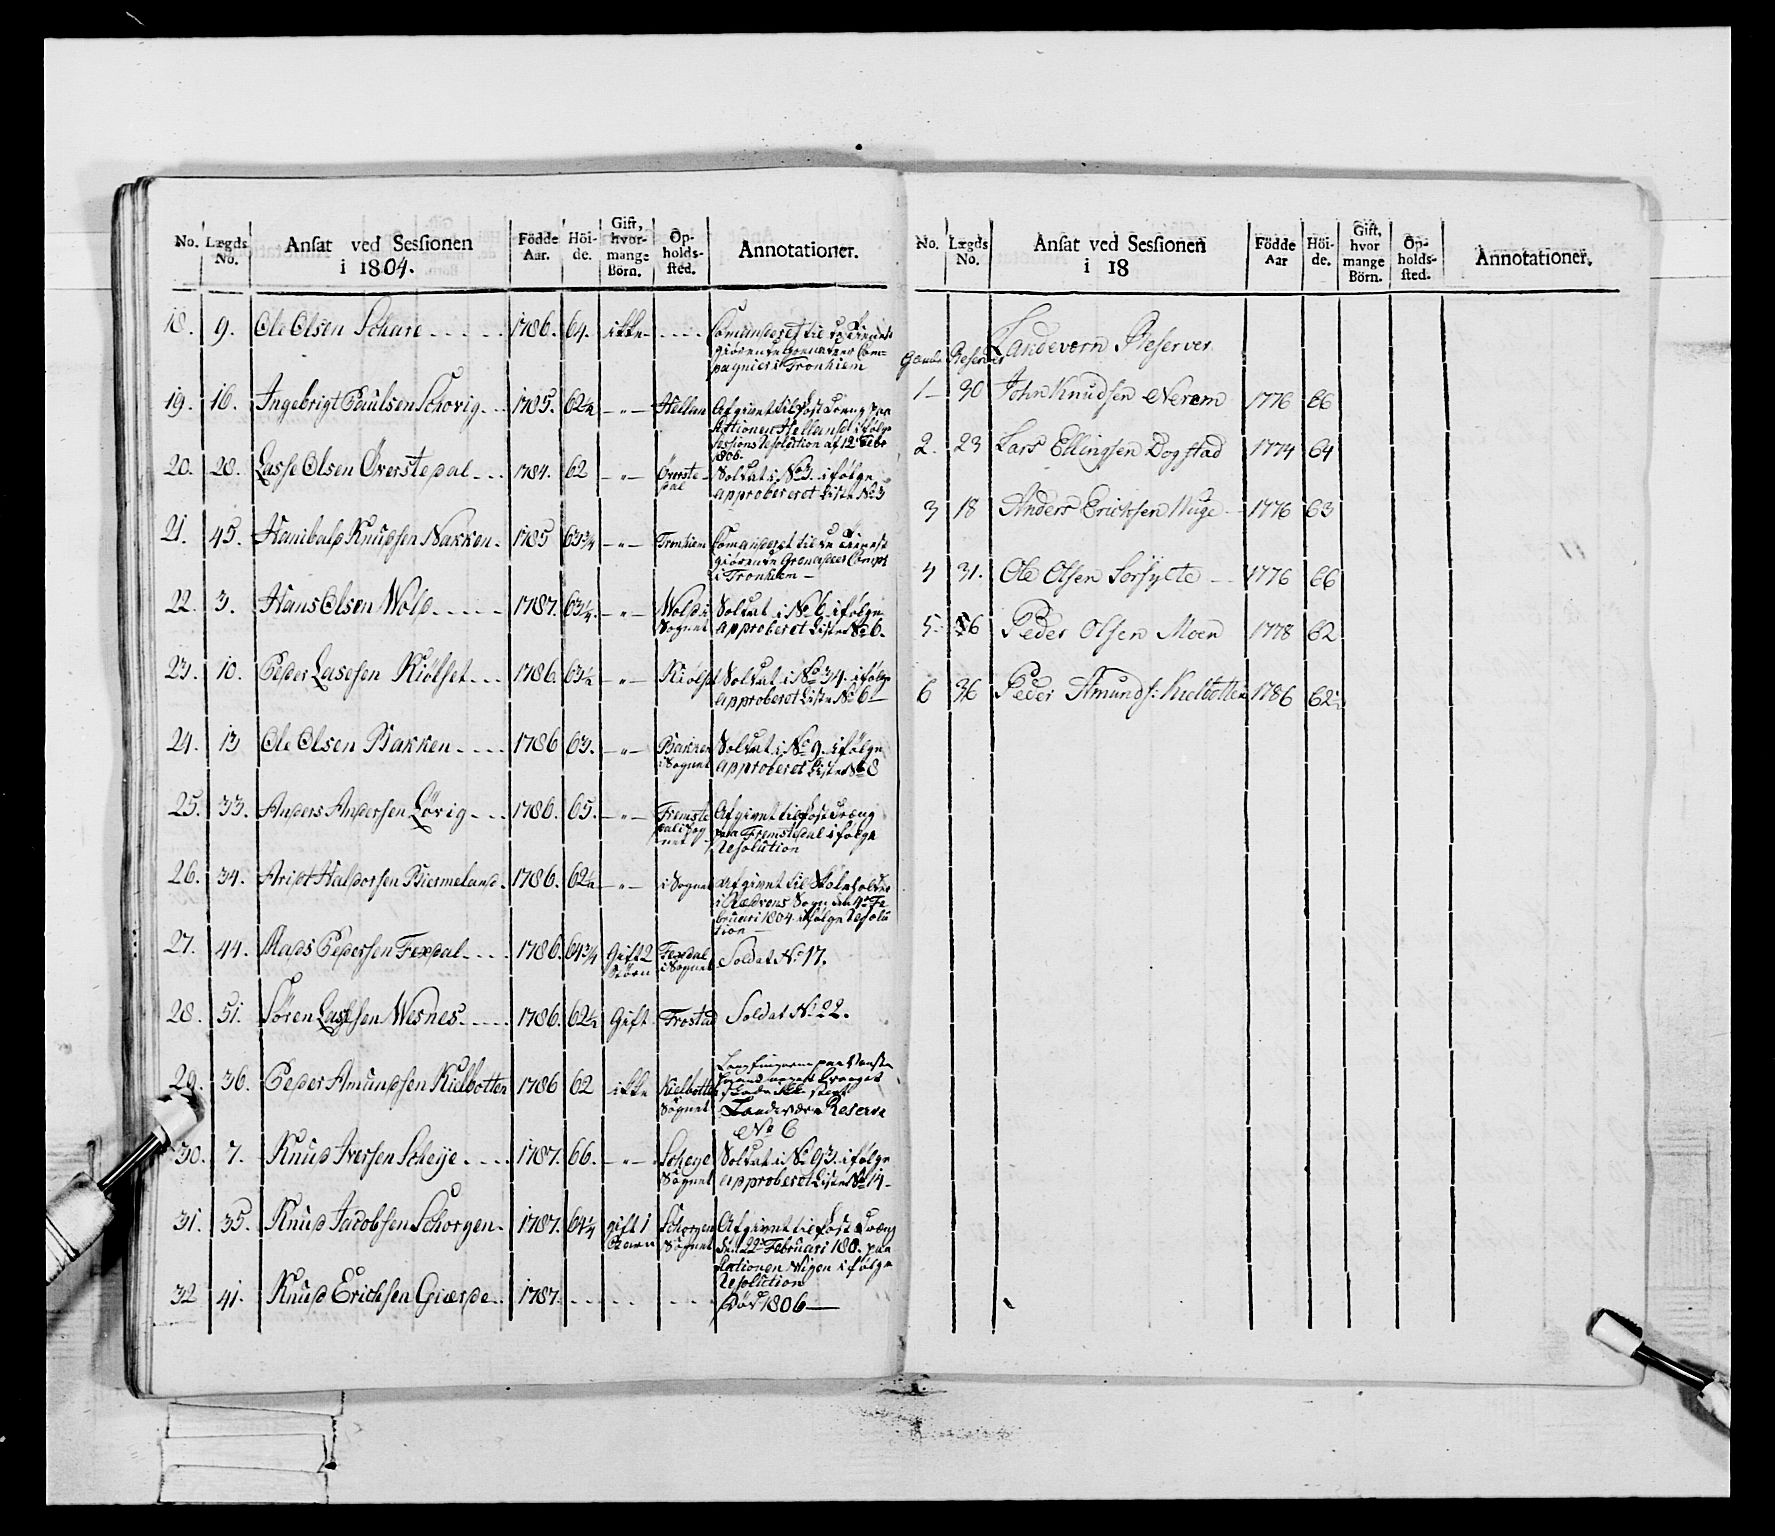 No. Lægds No. Ansat ved Sessionen i 1804. Födde Aar. Höi-de. Gift, hvor-mange Börn. Op-holds-sted. Annotationer.
18. 9. Ole Olsen Schare 1786. 64. ikke Comanderet til de Tieneste
giörende Grenaderer Com-
pagnier i Tronhiem
19. 16. Ingebrigt Paulsen Schovig 1785. 62½ " Hellan Afgivet til Post Dreng paa
Stationen Helland ifölge
Sessions Resolution af 12 Febr
1806.
20. 28. Lasse Olsen Överstedal 1784. 62 " Överste-
dal Soldat i No 3. ifölge
approberet Liste No 3
21. 45. Hanibald Knudsen Nakken 1785 63¾ " Tronhiem Comanderet til de Tieneste
giörende Grenadeer Comp:
i Tronhiem
22. 3. Hans Olsen Wold 1787. 63¼ " Wold i
Sognet Soldat i No 6 ifölge
approberet Liste No 6.
23. 10. Peder Lasesen Kiölset 1786. 63½ " Kiölset Soldat i No 34. ifölge
approberet Liste No 6
24. 13 Ole Olsen Bakken 1786 63. " Bakken
i Sognet Soldat i No 9. ifölge
approberet Liste No 8
25. 33. Anders Andersen Lövig 1786. 65. " Fremste
dal i Sog
net Afgivet til Post Dreng
paa Fremstedal ifölge
Resolution
26. 34. Arist Haldorsen Biermeland 1786. 62½ " i Sognet Afgivet til Skoleholder
i Sogn den 4de Fe
bruari 1804 ifölge Resolu
tion
27. 44. Mads Pedersen Fexdal 1786. 64¾ Gift 2
Börn Fexdal
i Sognet Soldat No 17.
28. 51. Sören Lassesen Wesnes 1786. 62½ Gift Frostad Soldat No 22.
29. 36. Peder Amundsen Kielbotten 1786 62 ikke Kielbotten
Sognet
Landeværn Reserve
No 6
30. 7. Knud Iversen Scheye 1787. 66. " Scheye
Sognet Soldat i No 93. ifölge
approberet Liste No 14
31. 35. Knud Jacobsen Schorgen 1787. 64¼ gift 1
Barn Schorgen
Sognet Afgivet til Post Dræng
den 22de Februari 180. paa
Stationen Wigen ifölge
Resolution
32 41. Knud Erichsen Gierde 1787. Död 1806
No. Lægds No. Ansat ved Sessionen i 18 Födde Aar Höi-de. Gift, hvor mange Börn. Op-holds-sted. Annotationer.
Landevern Reserver
Gamle Reserver
1 30 John Knudsen Nerem 1776 66
2. 23 Lars Ellingsen Dogstad 1774 64
3 18 Anders Erichsen Huge 1776 63
4 31. Ole Olsen Sorsylte 1776 66
5 56 Peder Olsen Moen 1778 62
6 36 Peder Amunds: Kielbotten 1786 62½